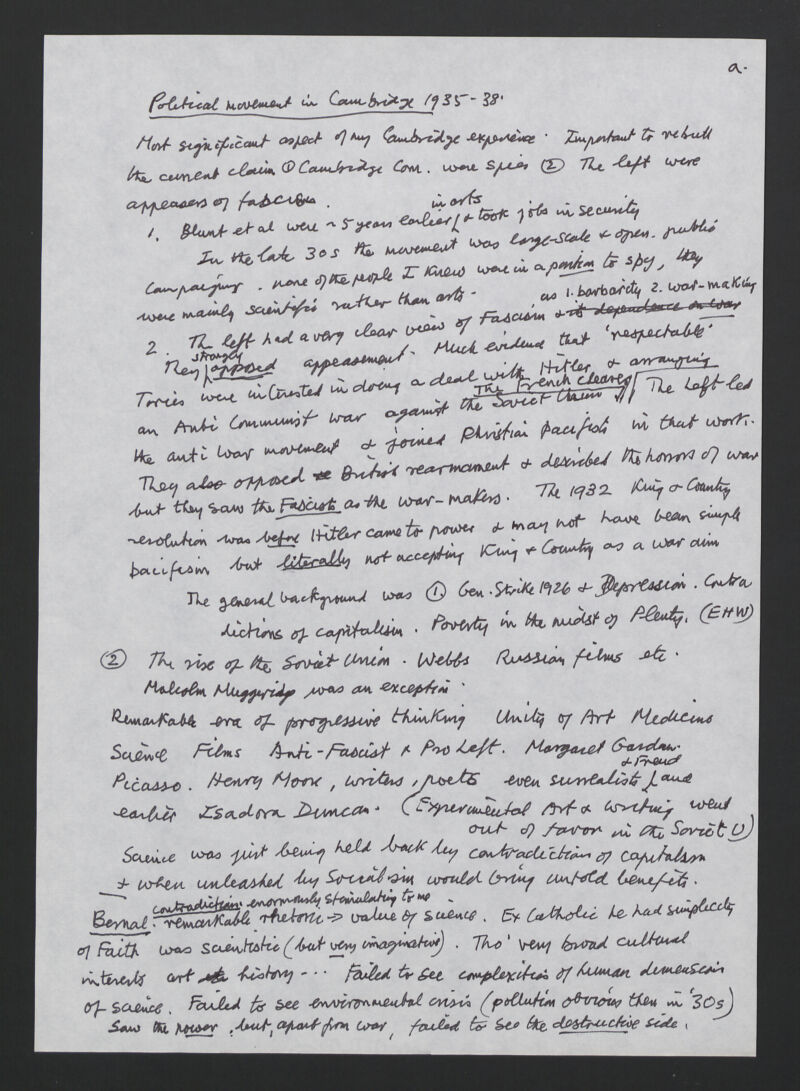 a.
Political movement in Cambridge 1935-38.
Most significant aspect of my Cambridge experience. Important to rebutt
the current claim ① Cambridge Com. were spies ② The left were
appeasers of fascism.
in arts
1. Blunt et al were ~5 years earlier & took jobs in security
In the late 30s the movement was large-scale & open. public
campaigns. none of the people I knew were in a position to spy, they
were mainly scientific rather than arts.
as 1. barbarity 2. war-making
2. The left had a very clear view of Fascism & its dependence on war
strongly
They opposed appeasement. Much evidence that 'respectable'
Tories were interested in doing a deal with Hitler & arranging
The French cleared
an Anti Communist war against the Soviet Union The Left led
the anti war movement & joined Christian pacifists in that work.
They also opposed British rearmament & described the horrors of war
but they saw the Fascists as the war-makers. The 1932 King & Country
resolution was before Hitler came to power & may not have been simple
pacifism but literally not accepting King & Country as a war aim
The general background was ① Gen. Strike 1926 & Depression. Contra
dictions of capitalism. Poverty in the midst of Plenty. (EHW)
② The rise of the Soviet Union. Webbs Russian films etc.
Malcolm Muggeridge was an exception.
Remarkable era of progressive thinking Unity of Art Medicine
Science Films Anti-Fascist & Pro Left. Margaret Gardiner.
& Freud
Picasso. Henry Moore, writers, poets even surrealists and
earlier Isadora Duncan. (Experimental Art & writing went
out of favor in the Soviet U)
Science was just being held back by contradiction of capitalism
& when unleashed by Socialism would bring untold benefits.
contradictions enormously stimulating to me
Bernal: remarkable rhetoric → value of science. Ex Catholic he had simplicity
of Faith was scientistic (but very imaginative). Tho' very broad cultural
interests art history --- Failed to see complexities of human dimension
of science. Failed to see environmental crisis (pollution obvious then in '30s)
Saw the power, but, apart from war, failed to see the destructive side.